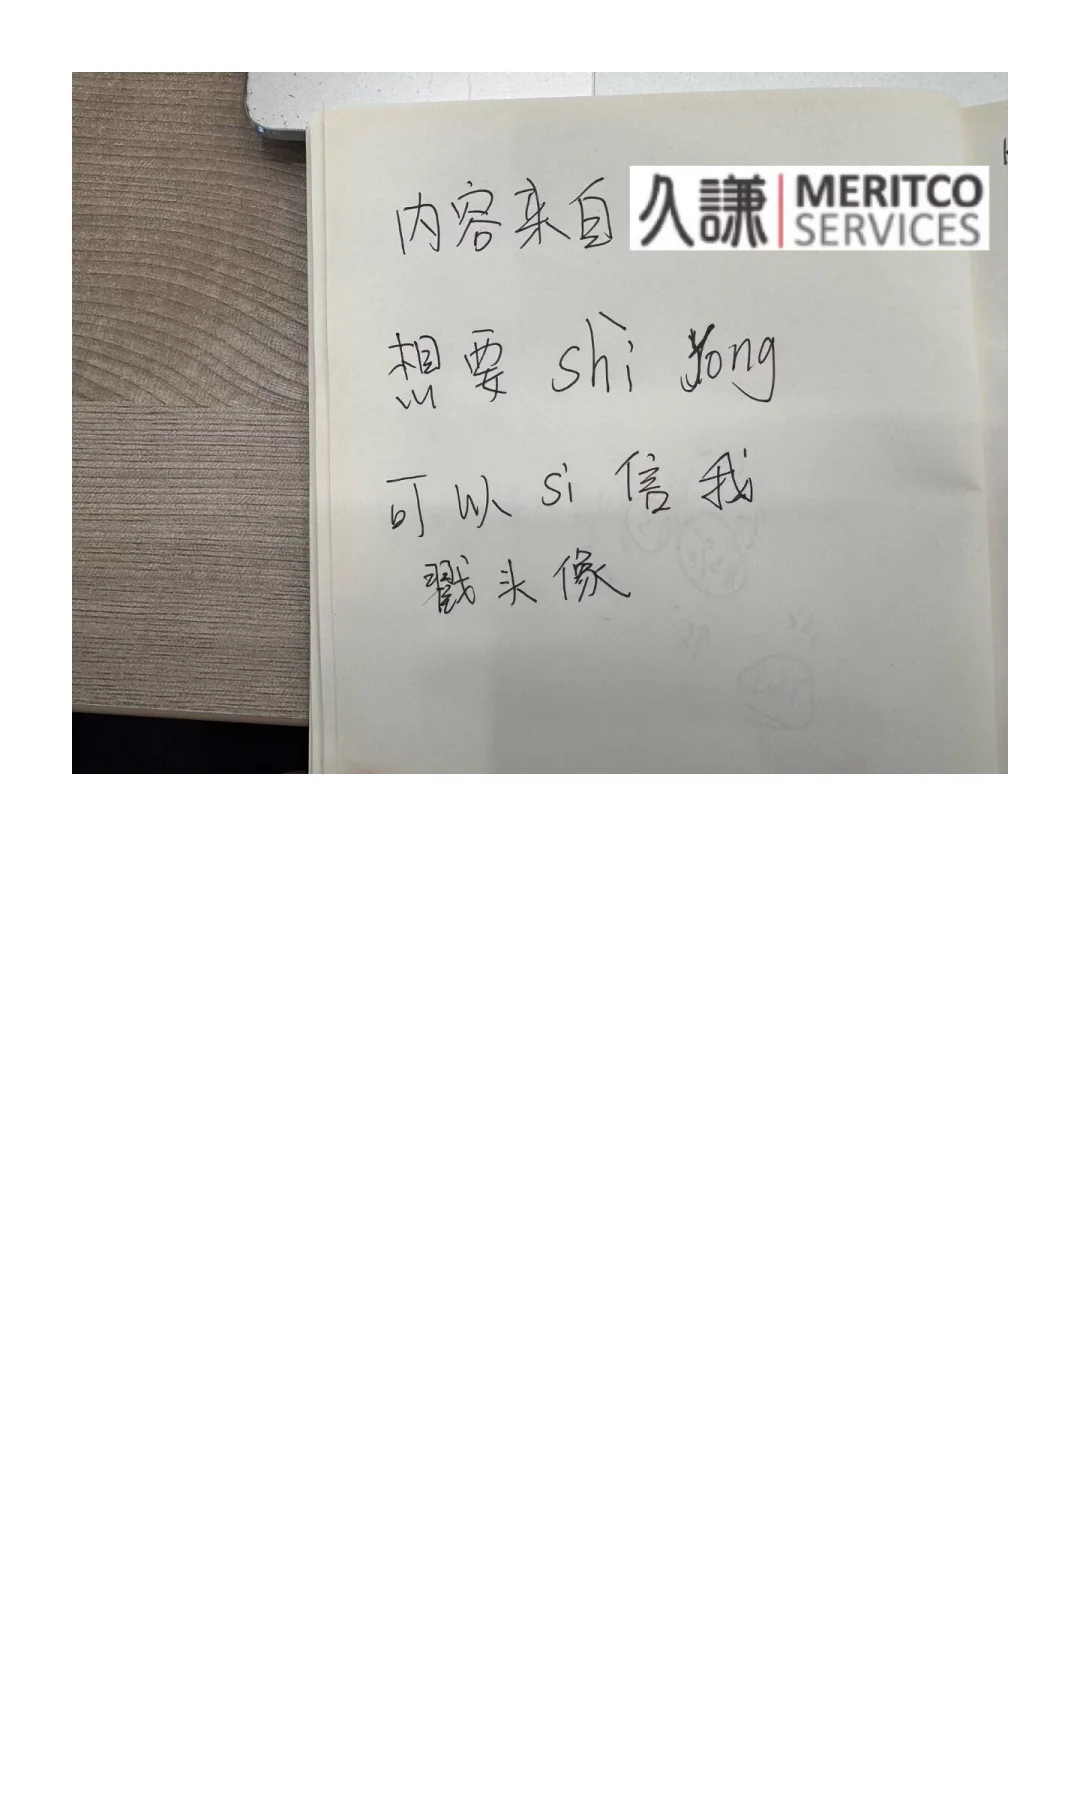 内容来自 久謙 MERITCO SERVICES
想要 shi yong
可以 si 信我
戳头像